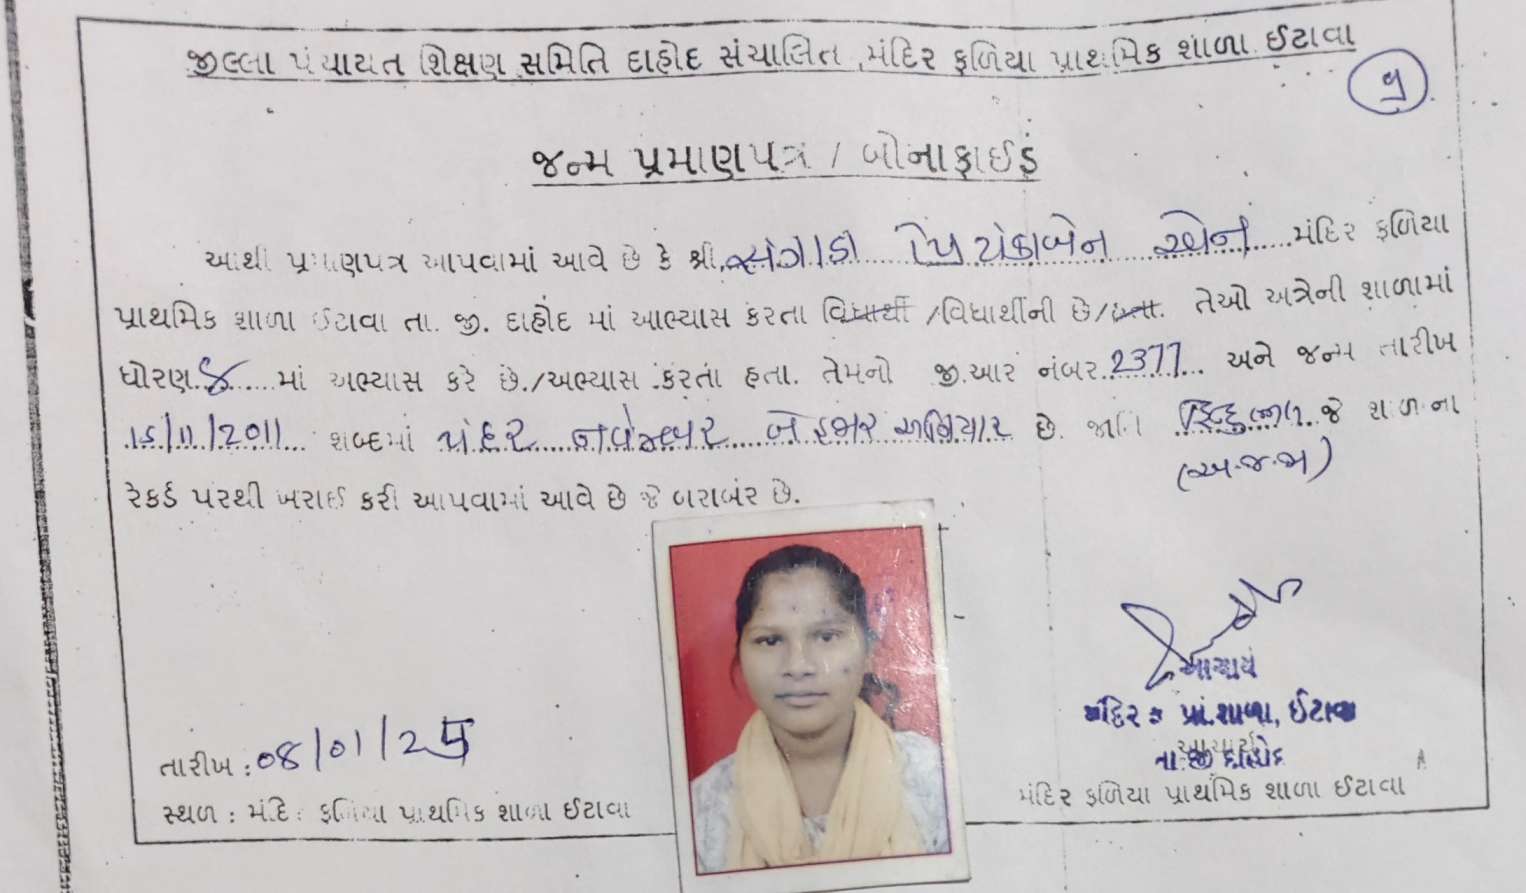 જીલ્લા પંચાયત શિક્ષણ સમિતિ દાહોદ સંચાલિત મંદિર ફળિયા પ્રાથમિક શાળા ઈટાવા
જન્મ પ્રમાણપત્ર / બોનાફાઈડ
આથી પ્રમાણપત્ર આપવામાં આવે છે કે શ્રી. સંગાડા પ્રિયંકાબેન મંદિર ફળિયા
પ્રાથમિક શાળા ઈટાવા તા. જી. દાહોદ માં આભ્યાસ કરતા વિદ્યાર્થી /વિદ્યાર્થીની છે/હતા. તેઓ અત્રેની શાળામાં
ધોરણ માં અભ્યાસ કરે છે./અભ્યાસ કરતાં હતા. તેમનો જી.આર નંબર 2377 અને જન્મ તારીખ
15/11/2011 શબ્દમાં પંદર નવેમ્બર બે હજાર અગિયાર છે. જાતિ જે શાળાના
(અ.જ.જા)
રેકર્ડ પરથી ખરાઈ કરી આપવામાં આવે છે જે બરાબર છે.
આચાર્ય
મંદિર ફ પ્રા.શાળા, ઈટાવા
આચાર્ય
તા.જી દાહોદ
તારીખ : 08/01/25
સ્થળ : મંદિર ફળિયા પ્રાથમિક શાળા ઈટાવા
મંદિર ફળિયા પ્રાથમિક શાળા ઈટાવા